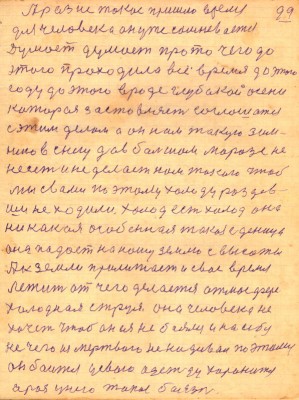 99
А раз не такое пришло время
для человека он уже сомневается
Думает думает про то чего до
этого проходила всё время до этого
году до этого вроде глубокой осени
которая заставляет соглошати
с этим делом а он нам такую зим
ню в снегу да в балшом марозе не
несет и не делает нам такого чтоб
мы с вами по этому холоду раздев-
ши не ходили. Холод ест холод она
никакая особенная такая еденица
она падаст на нашу землю с высоты
А к земли прилитает и свое время
лежит от чего делается атмосфере
холодная струя. она человека не
хочет чтоб она не боялис и на себу
не чего из мертвого не надивал поэтому
он боится целого одежду хоранит у
а раз у него такое